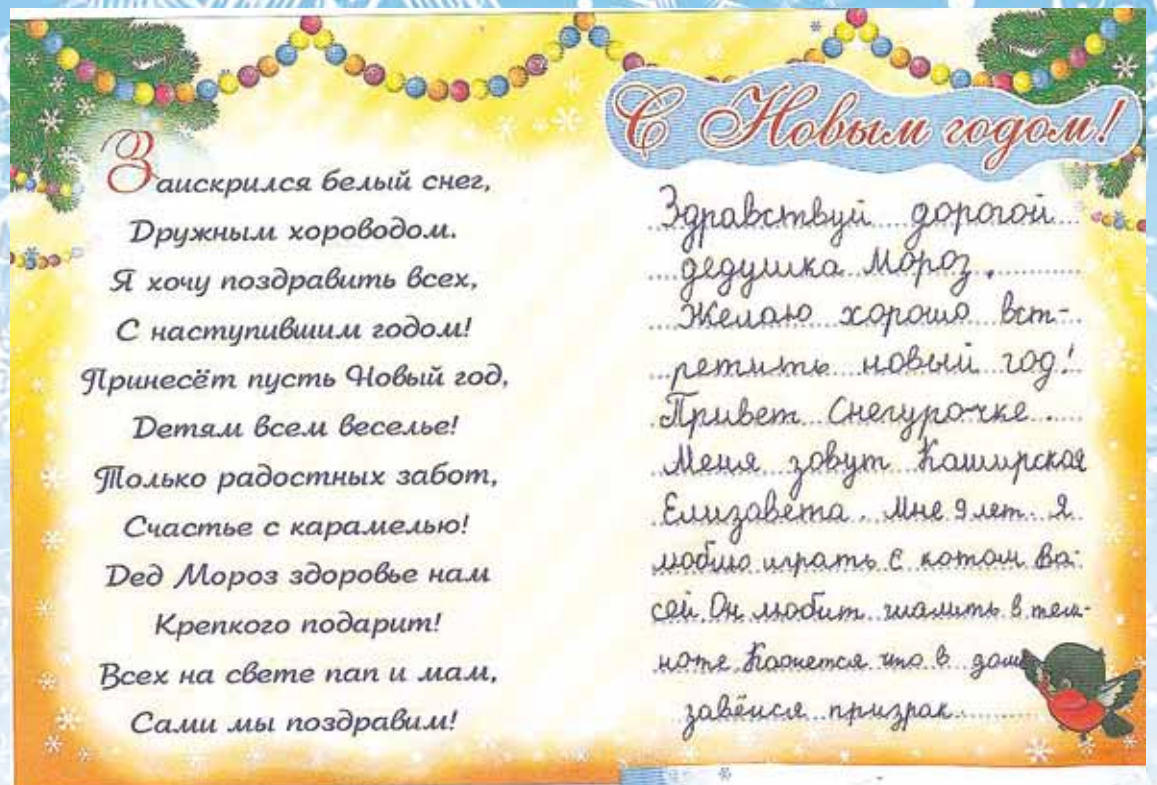 Заискрился белый снег,
Дружным хороводом.
Я хочу поздравить всех,
С наступившим годом!
Принесёт пусть Новый год,
Детям всем веселье!
Только радостных забот,
Счастье с карамелью!
Дед Мороз здоровье нам
Крепкого подарит!
Всех на свете пап и мам,
Сами мы поздравим!
С Новым годом!
Здравствуй дорогой
дедушка Мороз.
Желаю хорошо вст-
ретить новый год!
Привет Снегурочке.
Меня зовут Каширская
Елизавета. Мне 9 лет. Я
люблю играть с котом Ва-
сей. Он любит шалить в тем-
ноте. Кажется что в доме
завёлся призрак.